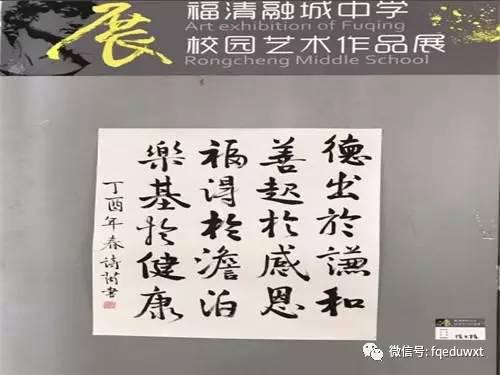 展
福清融城中学
Art exhibition of Fuqing
校园艺术作品展
Rongcheng Middle School
德出於謙和
善起於感恩
福得於澹泊
樂基於健康
丁酉年春诗
微信号: fqeduwxt